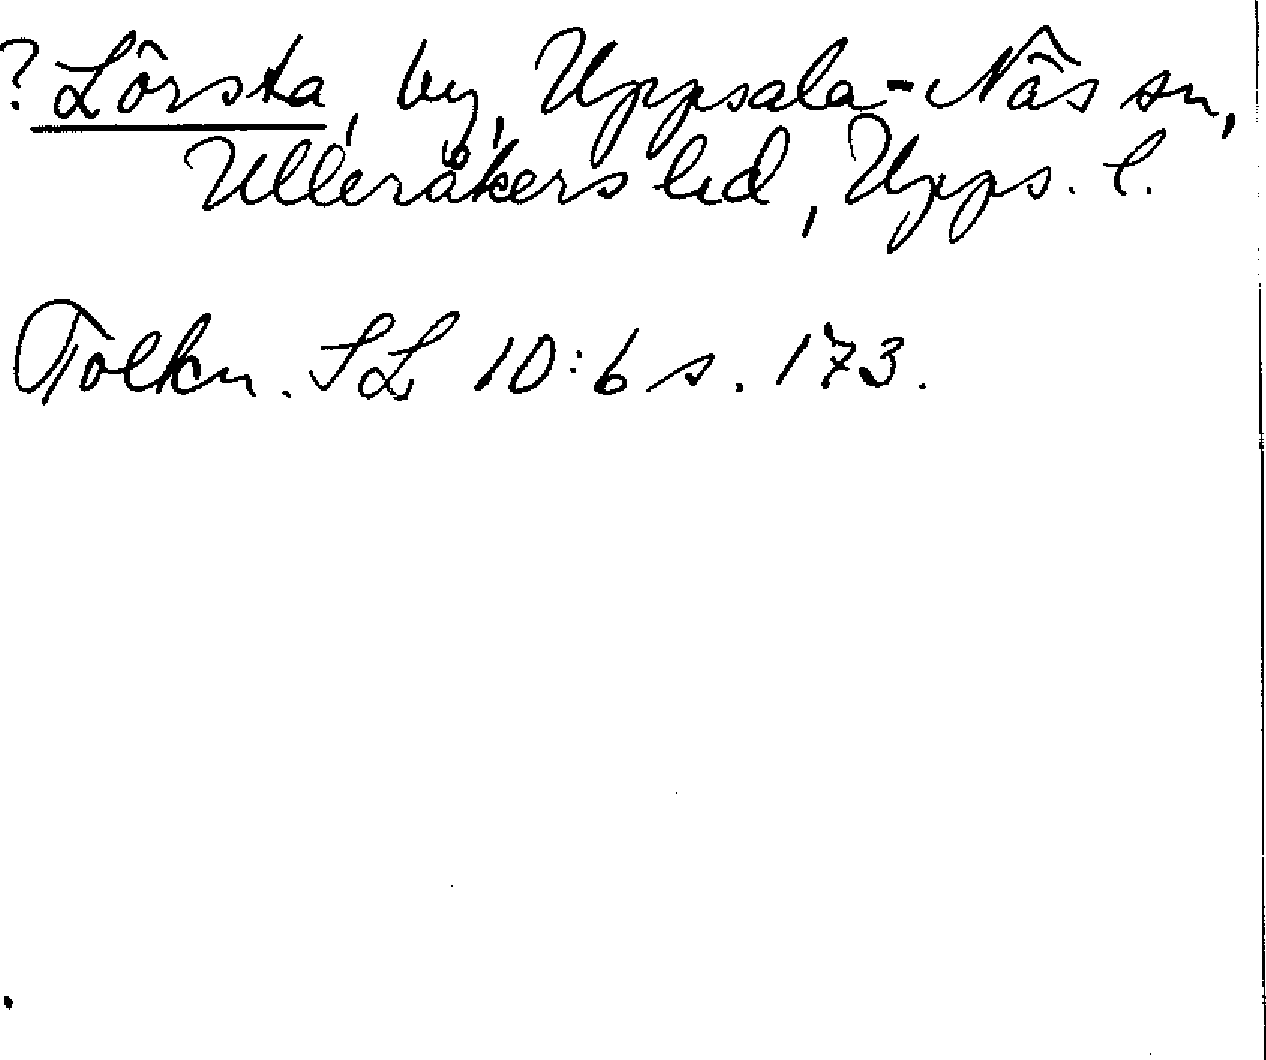 ? Lörsta, by, Uppsala-Näs sn,
Ulleråkers hd, Upps. l.
Tolkn. SL 10:6 s. 173.